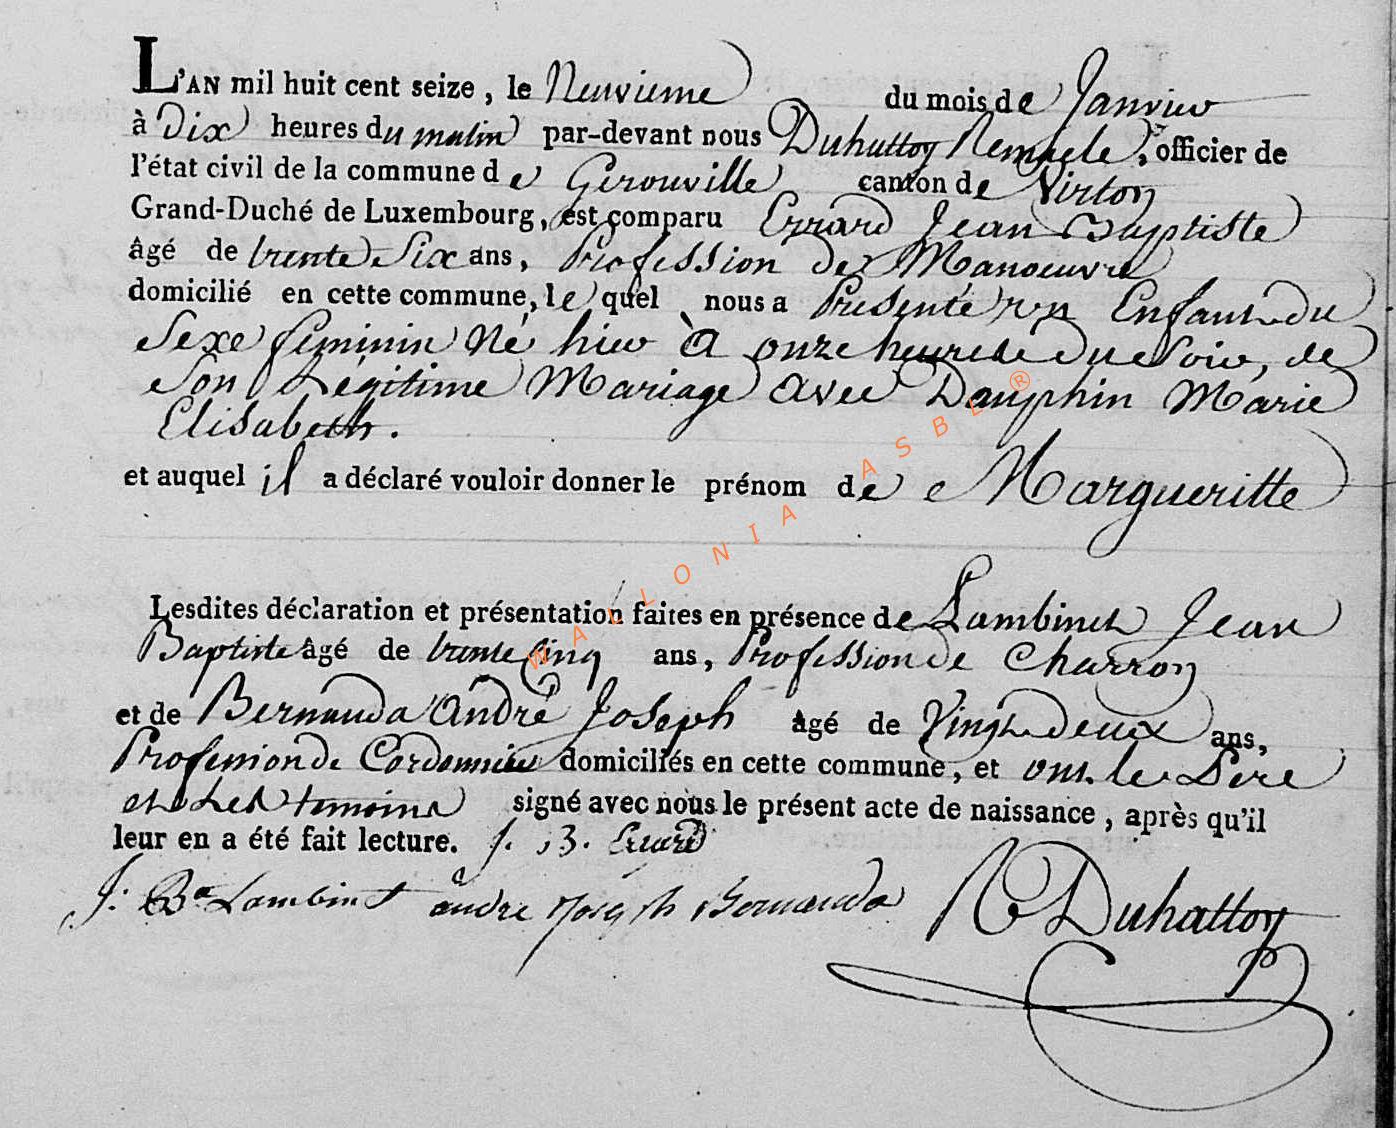 L'AN mil huit cent seize, le Neuvieme du mois de Janvier
à Dix heures du matin par-devant nous Duhattoy Remacle, officier de
l'état civil de la commune de Gerouville canton de Virton
Grand-Duché de Luxembourg, est comparu Errard Jean Baptiste
âgé de trente Six ans, Profession de Manoeuvre
domicilié en cette commune, le quel nous a Presenté un Enfant du
Sexe feminin Né hier à onze heure de du Soir, de
Son Légitime Mariage avec Dauphin Marie
Elisabeth.
et auquel il a déclaré vouloir donner le prénom de Margueritte
Lesdites déclaration et présentation faites en présence de Lambinet Jean
Baptiste âgé de trente Cinq ans, Profession de Charron
et de Bernauda André Joseph âgé de Vingt deux ans,
Profession de Cordonnier domiciliés en cette commune, et ont le Pere
et Les temoins signé avec nous le présent acte de naissance, après qu'il
leur en a été fait lecture. J. B. Erard
J: Bte Lambinet andre Joseph Bernauda R Duhattoy
WALLONIA ASBL ®